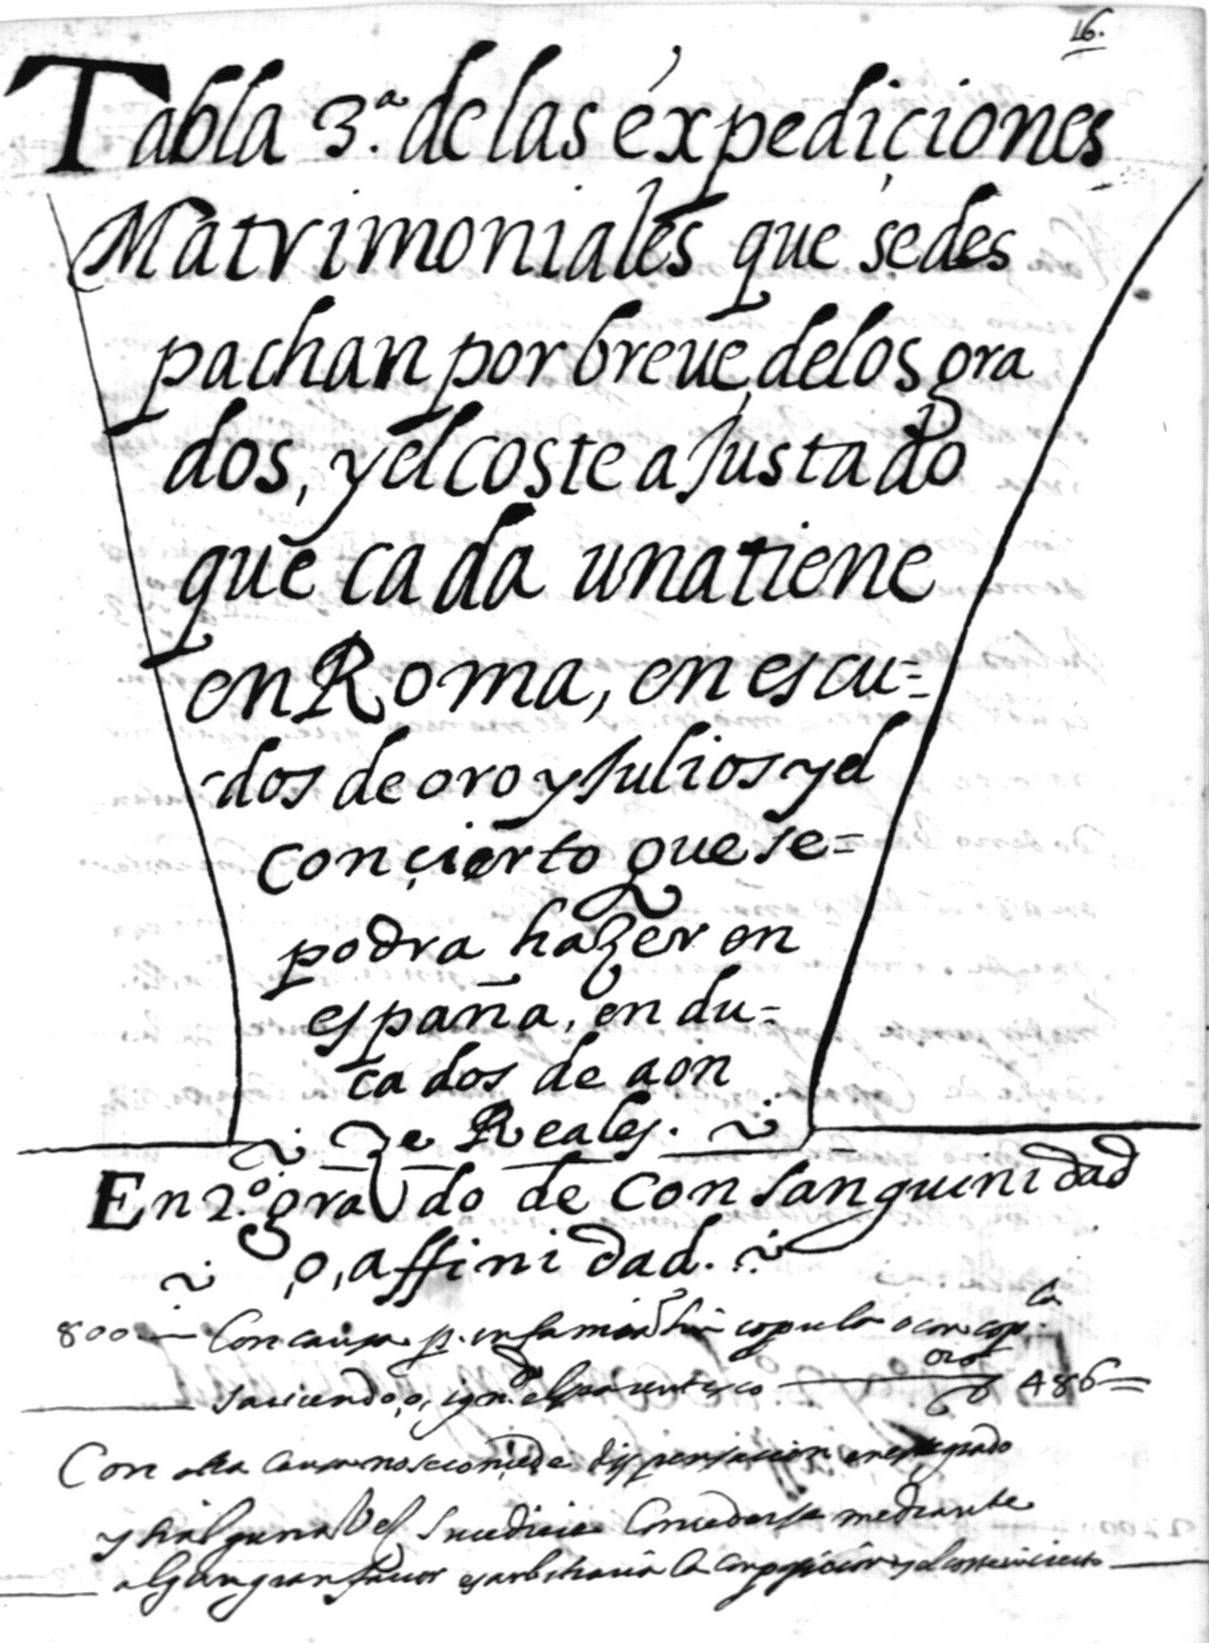 16.
Tabla 3.ª de las expediçiones
Matrimoniales que se des
pachan por breue, de los gra
dos, y el coste aJustado
que cada una tiene
en Roma, en escu=
-dos de oro y Julios y el
conçierto que se=
podra hazer en
españa, en du=
cados de aon
ze Reales.
En 2.º grado de Consanguinidad
o, affinidad.
800 — Con causa infamia sin copula o con cop.la
sauiendo, o, ign.do el parentesco — oro 486=
Con otra causa no se conçede dispensacion en este grado
y si alguna Vez Sucediese Concederse mediante
algun gran fauor es arbitraria la conposicion y el coste incierto